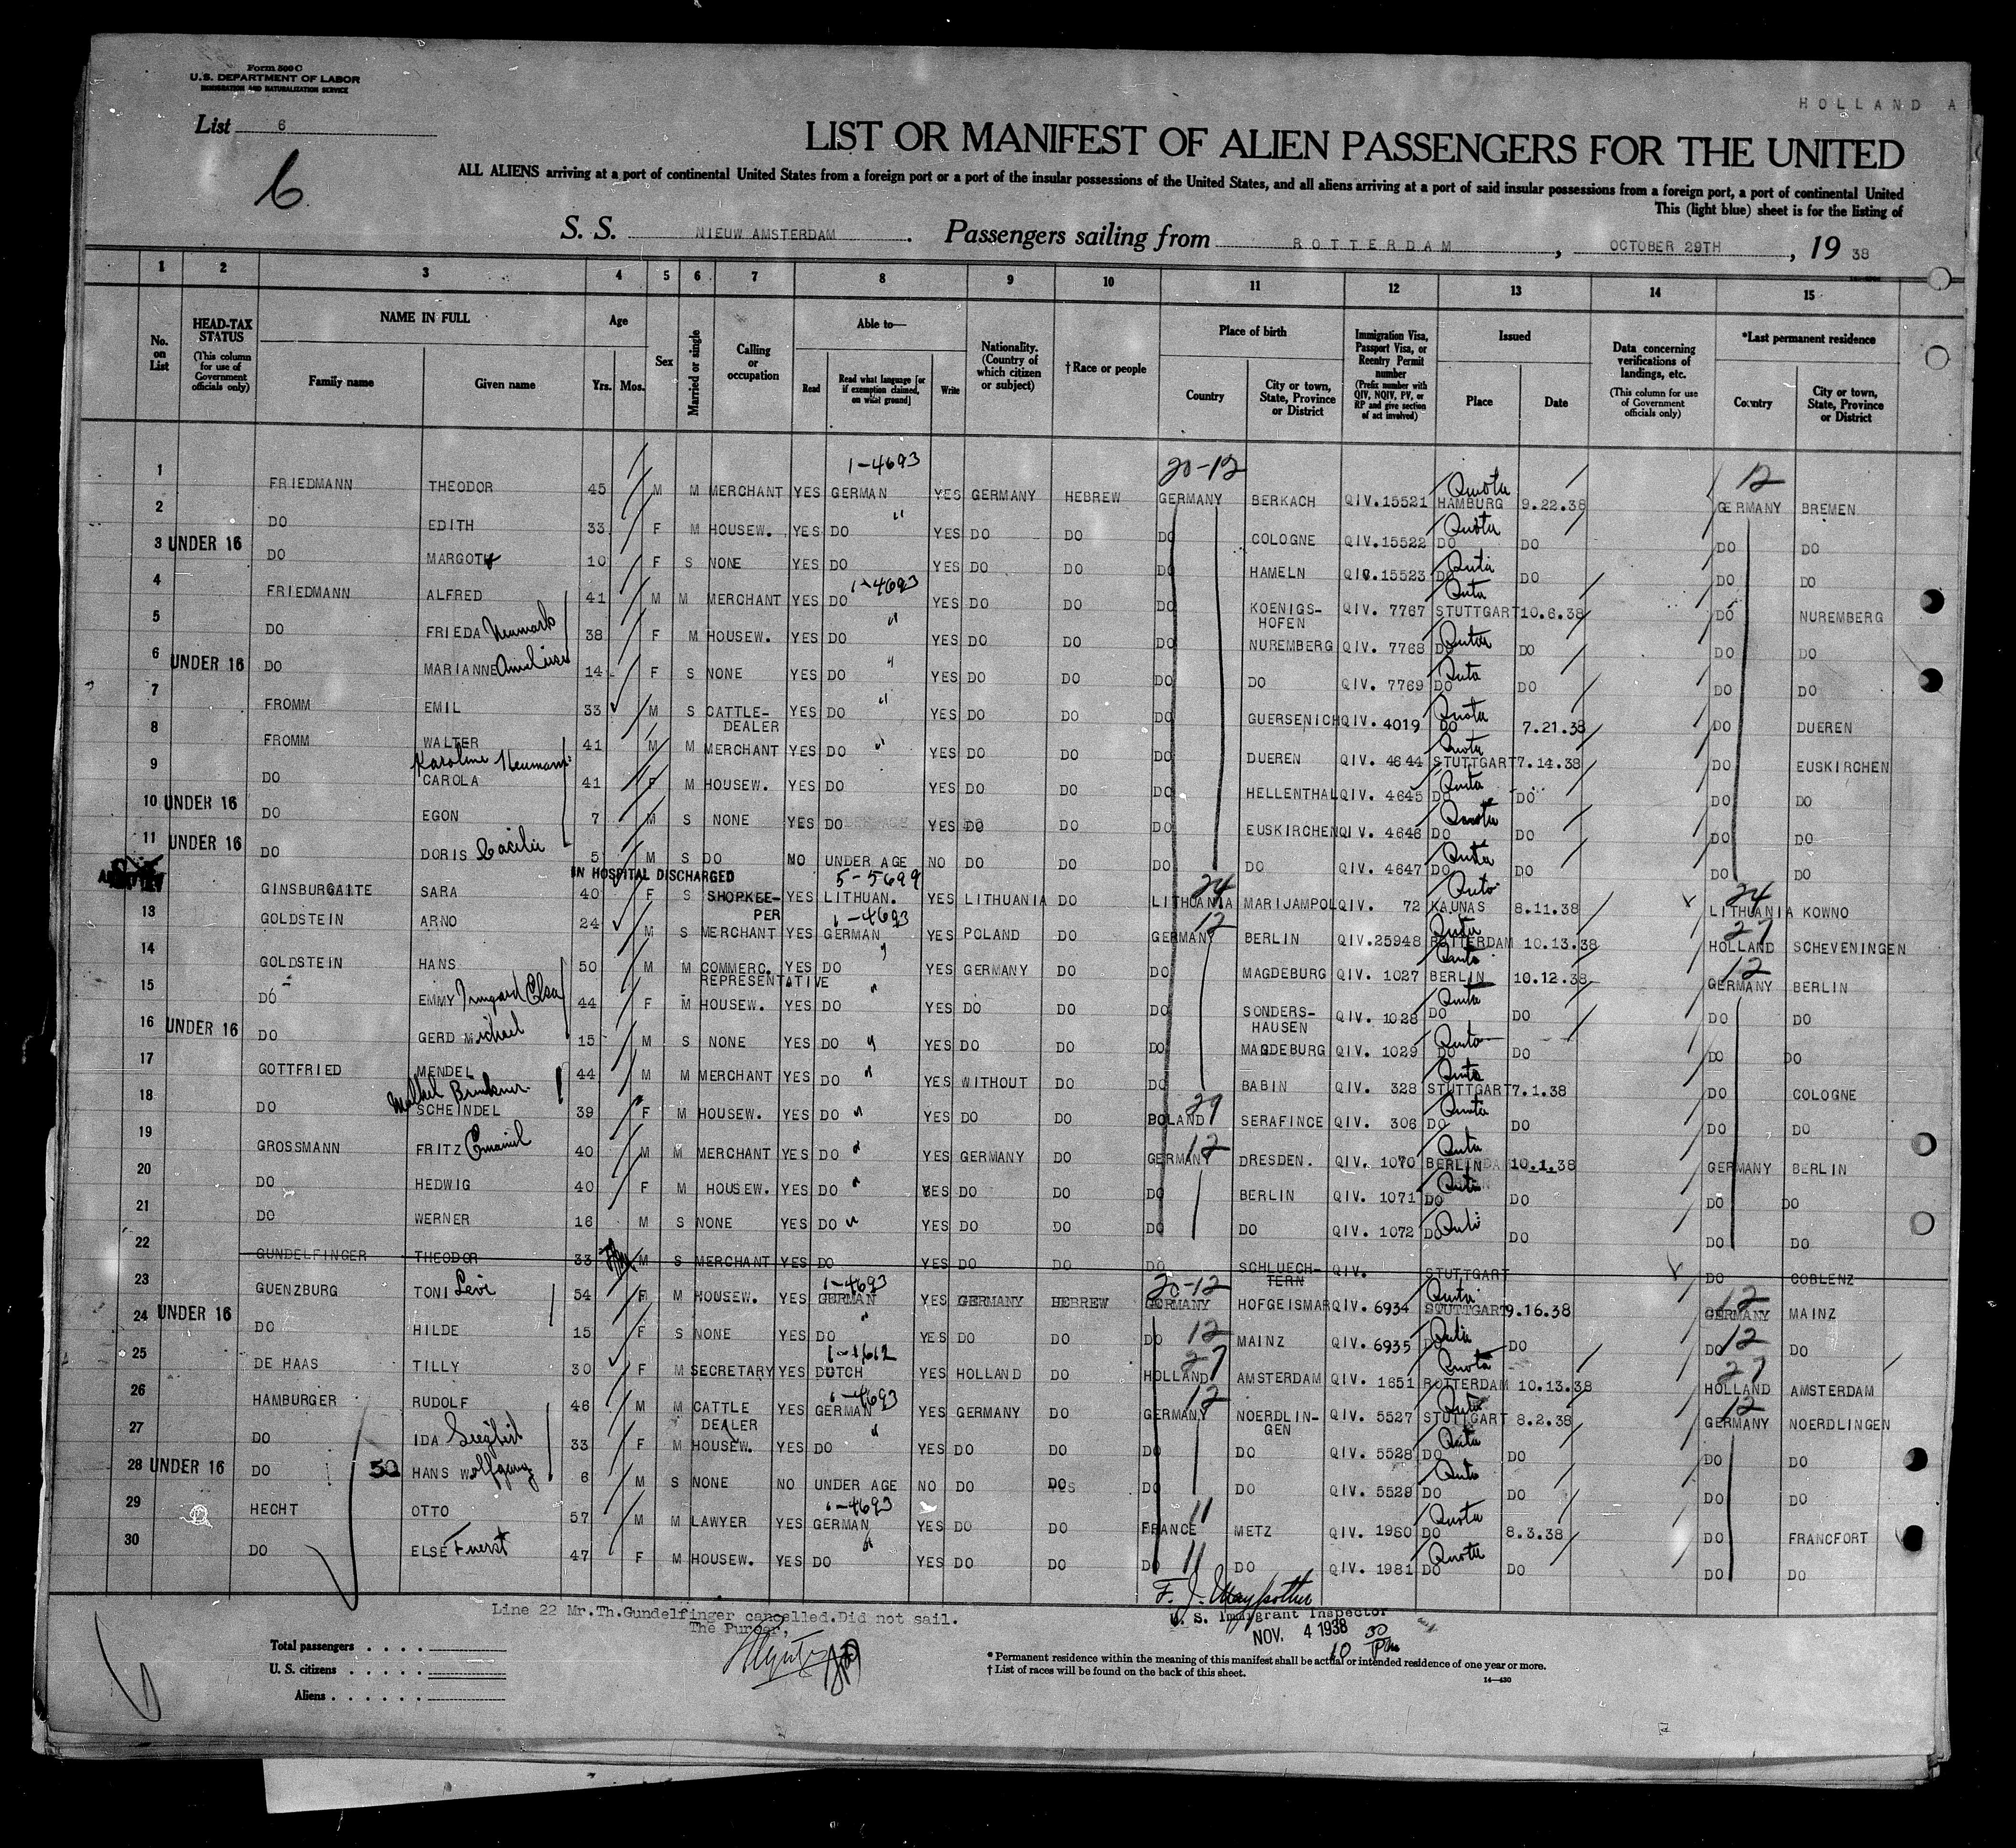 Form 500 C
U.S. DEPARTMENT OF LABOR
IMMIGRATION AND NATURALIZATION SERVICE
HOLLAND A
List 6
6
LIST OR MANIFEST OF ALIEN PASSENGERS FOR THE UNITED
ALL ALIENS arriving at a port of continental United States from a foreign port or a port of the insular possessions of the United States, and all aliens arriving at a port of said insular possessions from a foreign port, a port of continental United
This (light blue) sheet is for the listing of
S. S. NIEUW AMSTERDAM. Passengers sailing from ROTTERDAM, OCTOBER 29TH, 19 38
1 2 3 4 5 6 7 8 9 10 11 12 13 14 15
No. on List
HEAD-TAX STATUS (This column for use of Government officials only)
NAME IN FULL Family name Given name
Age Yrs. Mos.
Sex
Married or single
Calling or occupation
Able to— Read Read what language [or if exemption claimed, on what ground] Write
Nationality. (Country of which citizen or subject)
†Race or people
Place of birth Country City or town, State, Province or District
Immigration Visa, Passport Visa, or Reentry Permit number (Prefix number with QIV, NQIV, PV, or RP and give section of act involved)
Issued Place Date
Data concerning verifications of landings, etc. (This column for use of Government officials only)
*Last permanent residence Country City or town, State, Province or District
1-4693 20-12 12
1 FRIEDMANN THEODOR 45 M M MERCHANT YES GERMAN YES GERMANY HEBREW GERMANY BERKACH QIV.15521 Quota HAMBURG 9.22.38 GERMANY BREMEN
2 DO EDITH 33 F M HOUSEW. YES DO " YES DO DO DO COLOGNE QIV.15522 Quota DO DO DO DO
3 UNDER 16 DO MARGOT 10 F S NONE YES DO YES DO DO DO HAMELN QIV.15523 Quota DO DO DO DO
4 FRIEDMANN ALFRED 41 M M MERCHANT YES DO 1-4693 YES DO DO DO KOENIGS-HOFEN QIV. 7767 Quota STUTTGART 10.6.38 DO NUREMBERG
5 DO FRIEDA Neumark 38 F M HOUSEW. YES DO " YES DO DO DO NUREMBERG QIV. 7768 Quota DO DO DO DO
6 UNDER 16 DO MARIANNE Anneliese 14 F S NONE YES DO " YES DO DO DO DO QIV. 7769 Quota DO DO DO DO
7 FROMM EMIL 33 M S CATTLE-DEALER YES DO " YES DO DO DO GUERSENICH QIV. 4019 Quota DO 7.21.38 DO DUEREN
8 FROMM WALTER 41 M M MERCHANT YES DO " YES DO DO DO DUEREN QIV. 4644 Quota STUTTGART 7.14.38 DO EUSKIRCHEN
9 DO Karoline Neumann CAROLA 41 F M HOUSEW. YES DO YES DO DO DO HELLENTHAL QIV. 4645 Quota DO DO DO DO
10 UNDER 16 DO EGON 7 M S NONE YES DO YES DO DO DO EUSKIRCHEN QIV. 4646 Quota DO DO DO DO
11 UNDER 16 DO DORIS Cacilie 5 M S DO NO UNDER AGE NO DO DO DO DO QIV. 4647 Quota DO DO DO DO
IN HOSPITAL DISCHARGED 5-5699 24 24
GINSBURGAITE SARA 40 F S SHOPKEE-PER YES LITHUAN. YES LITHUANIA DO LITHUANIA MARIJAMPOL QIV. 72 Quota KAUNAS 8.11.38 LITHUANIA KOWNO
13 GOLDSTEIN ARNO 24 M S MERCHANT YES GERMAN 1-4693 YES POLAND DO GERMANY 12 BERLIN QIV.25948 Quota ROTTERDAM 10.13.38 HOLLAND 27 SCHEVENINGEN
14 GOLDSTEIN HANS 50 M M COMMERC. REPRESENTATIVE YES DO " YES GERMANY DO DO MAGDEBURG QIV. 1027 Quota BERLIN 10.12.38 GERMANY 12 BERLIN
15 DO EMMY Irmgard Elsa 44 F M HOUSEW. YES DO " YES DO DO DO SONDERS-HAUSEN QIV. 1028 Quota DO DO DO DO
16 UNDER 16 DO GERD Michael 15 M S NONE YES DO " YES DO DO DO MAGDEBURG QIV. 1029 Quota DO DO DO DO
17 GOTTFRIED MENDEL 44 M M MERCHANT YES DO " YES WITHOUT DO DO BABIN QIV. 328 Quota STUTTGART 7.1.38 DO COLOGNE
18 DO SCHEINDEL 39 F M HOUSEW. YES DO " YES DO DO POLAND 29 SERAFINCE QIV. 306 Quota DO DO DO DO
19 GROSSMANN FRITZ Emanuel 40 M M MERCHANT YES DO " YES GERMANY DO GERMANY 12 DRESDEN. QIV. 1070 Quota BERLIN 10.1.38 GERMANY BERLIN
20 DO HEDWIG 40 F M HOUSEW. YES DO " YES DO DO DO BERLIN QIV. 1071 Quota DO DO DO DO
21 DO WERNER 16 M S NONE YES DO " YES DO DO DO DO QIV. 1072 Quota DO DO DO DO
22 GUNDELFINGER THEODOR 33 M S MERCHANT YES DO YES DO DO DO SCHLUECH-TERN QIV. STUTTGART DO COBLENZ
23 GUENZBURG TONI Levi 54 F M HOUSEW. YES GERMAN 1-4693 YES GERMANY HEBREW GERMANY 20-12 HOFGEISMAR QIV. 6934 Quota STUTTGART 9.16.38 GERMANY 12 MAINZ
24 UNDER 16 DO HILDE 15 F S NONE YES DO " YES DO DO DO 12 MAINZ QIV. 6935 Quota DO DO DO 12 DO
25 DE HAAS TILLY 30 F M SECRETARY YES DUTCH YES HOLLAND DO HOLLAND 27 AMSTERDAM QIV. 1651 Quota ROTTERDAM 10.13.38 HOLLAND 27 AMSTERDAM
26 HAMBURGER RUDOLF 46 M M CATTLE DEALER YES GERMAN 1-4693 YES GERMANY DO GERMANY 12 NOERDLIN-GEN QIV. 5527 Quota STUTTGART 8.2.38 GERMANY 12 NOERDLINGEN
27 DO IDA 33 F M HOUSEW. YES DO " YES DO DO DO DO QIV. 5528 Quota DO DO DO DO
28 UNDER 16 DO 30 HANS Wolfgang 6 M S NONE NO UNDER AGE NO DO DO DO DO QIV. 5529 Quota DO DO DO DO
29 HECHT OTTO 57 M M LAWYER YES GERMAN 1-4693 YES DO DO FRANCE 11 METZ QIV. 1980 Quota DO 8.3.38 DO FRANCFORT
30 DO ELSE Fuerst 47 F M HOUSEW. YES DO " YES DO DO DO 11 DO QIV. 1981 Quota DO DO DO DO
Line 22 Mr.Th.Gundelfinger cancelled.Did not sail.
The Purser,
U. S. Immigrant Inspector
NOV. 4 1938
10 30 PM
Total passengers
U. S. citizens
Aliens
* Permanent residence within the meaning of this manifest shall be actual or intended residence of one year or more.
† List of races will be found on the back of this sheet.
14—430